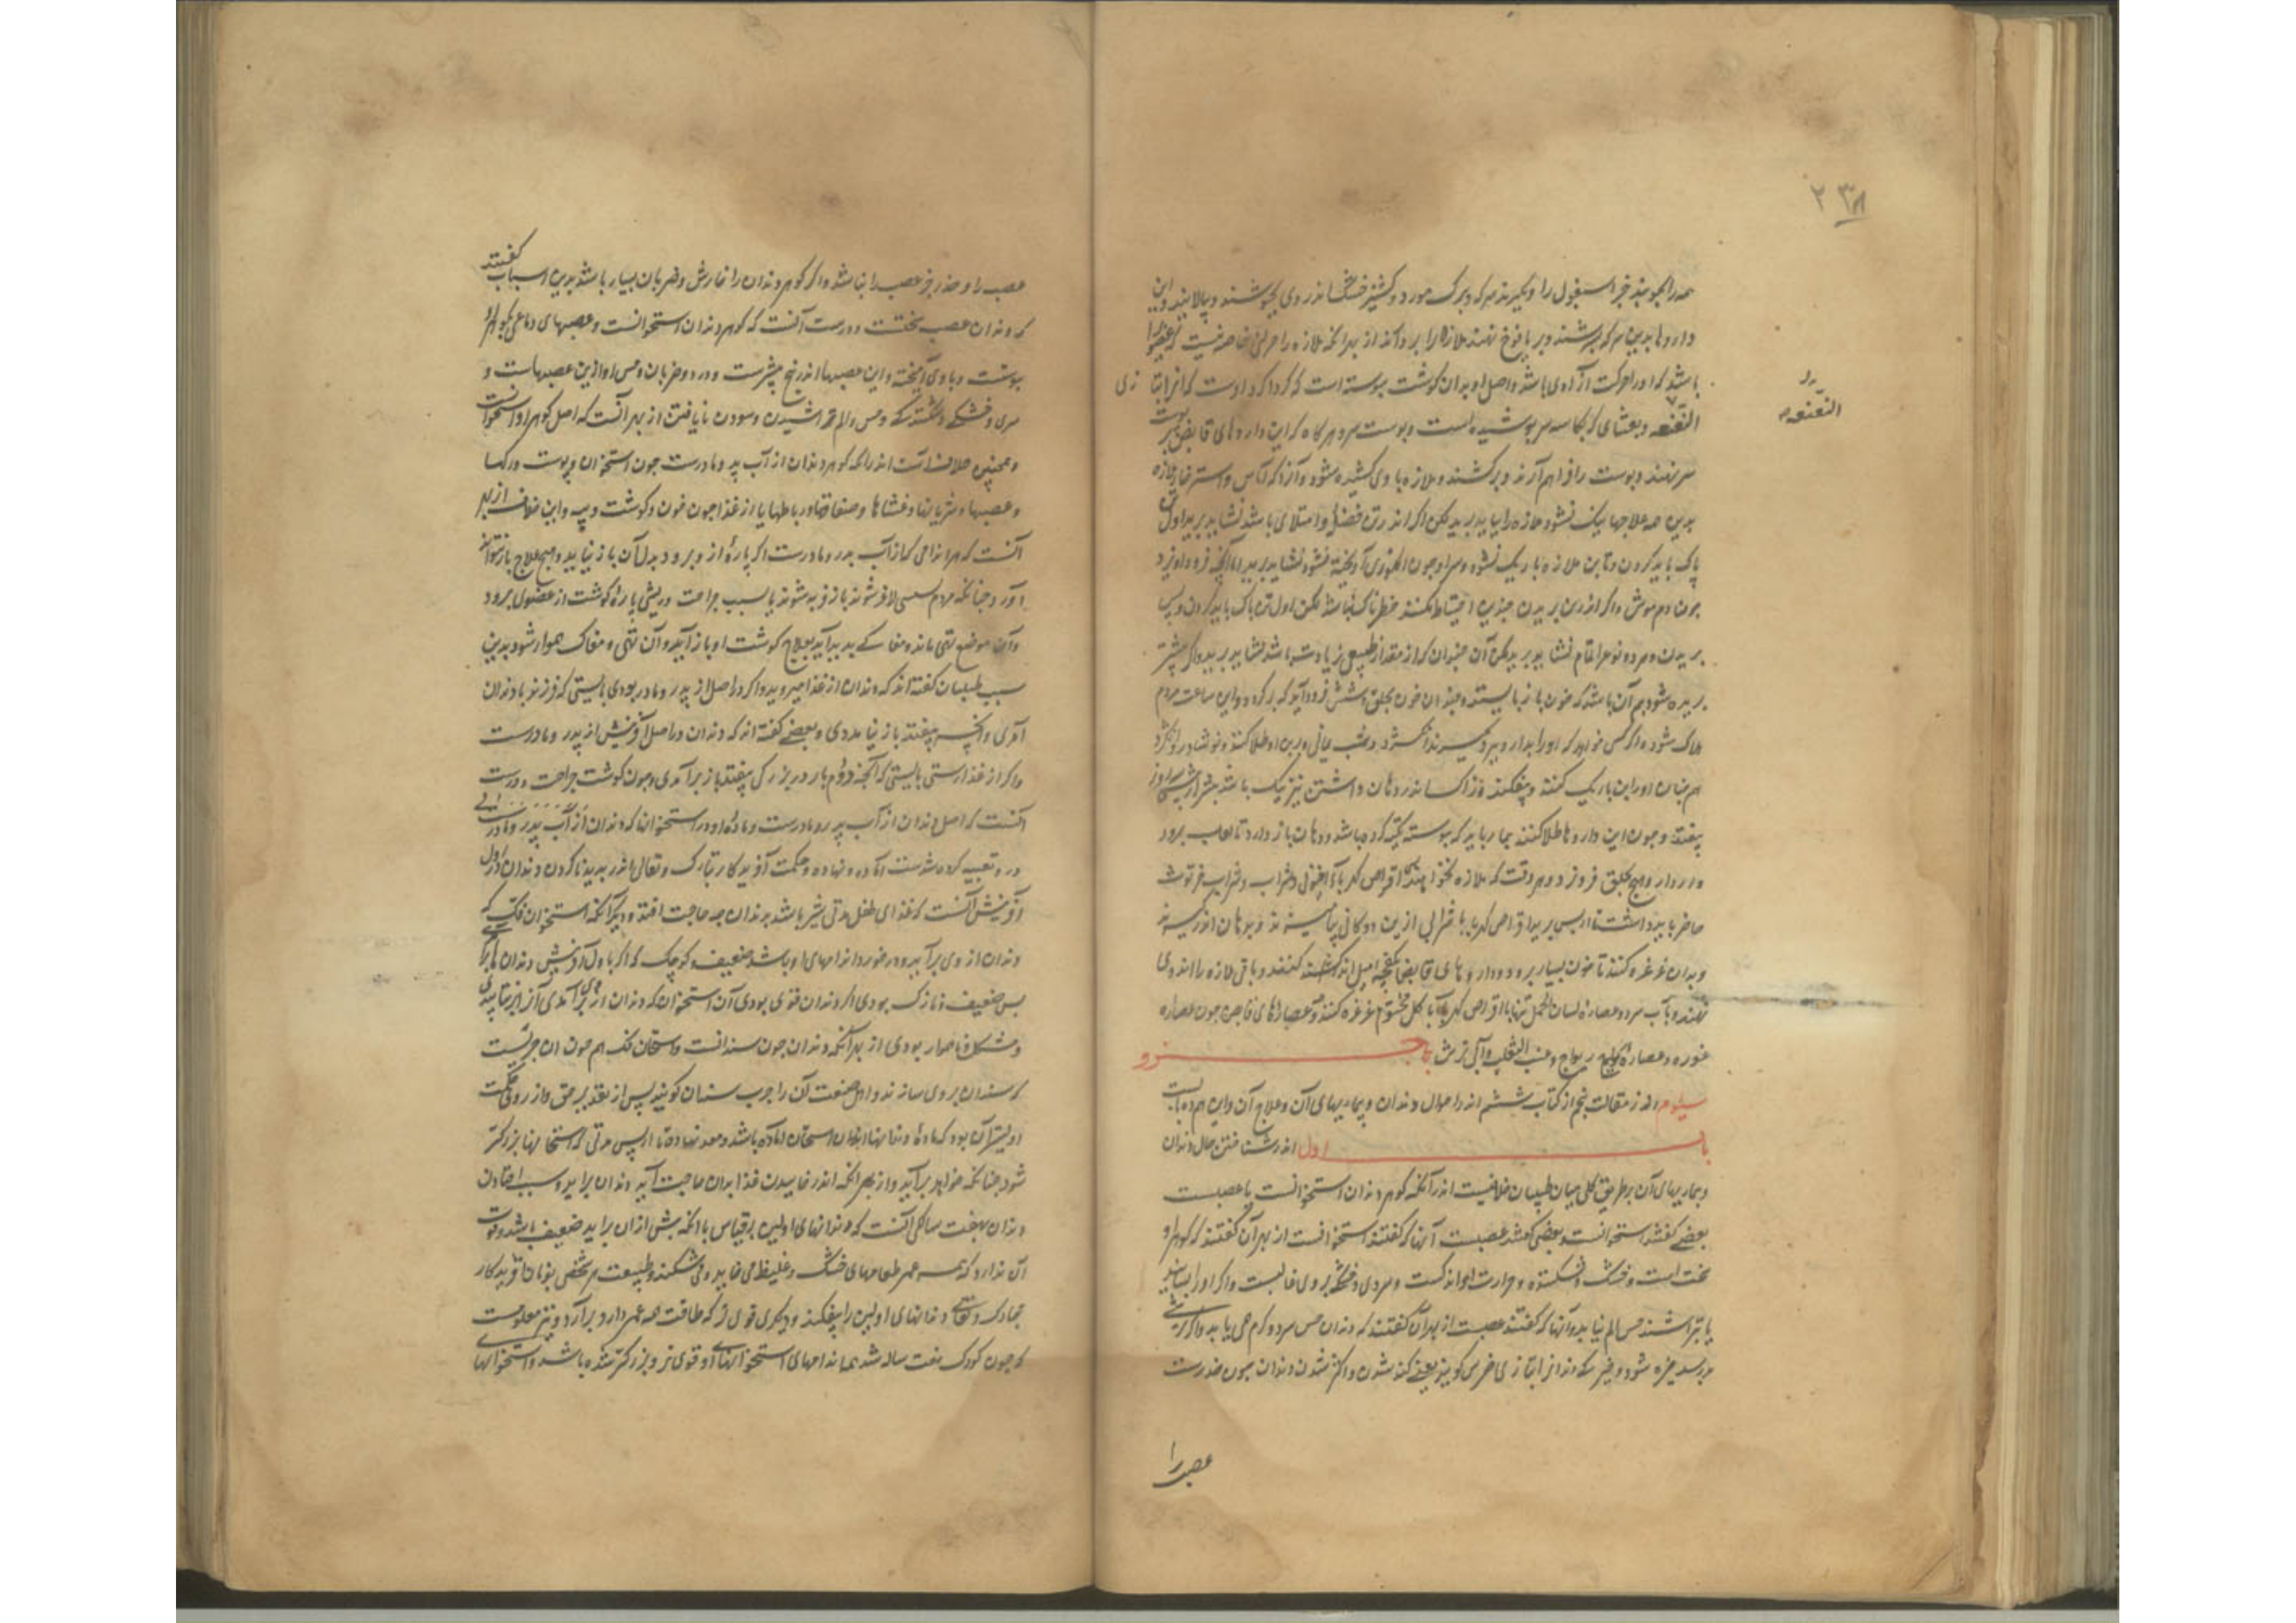 ۲۳۸
همه را بجوشند جز اسبغول را و بگیرند سرکه و برک مورد و کشنیز خشک اندر وی بجوشند و بپالایند و این
داروها بدین سرکه بسرشند و بر یافوخ نهند ملازه را بردارد از بهر آنکه ملازه را حرکتی خاصه نیست
باشد که او را حرکت ارادی باشد و اصل او بدان کوشت پیوسته است که کرداکرد اوست که آنرا بتازی
النغنغه
النغنغه و بغشای که بکاسه سر پوشیده است و پوست سر و هرکاه که این داروهای قابض بر پوست
سر نهند و پوست را فراهم آرند و برکشند و ملازه با وی کشیده شود و آنرا که آماس و استرخاء ملازه
بدین همه علاجها نیک نشود ملازه را بباید برید لکن اکر اندر تن فضلی و امتلای باشد نشاید برید اول تن
پاک باید کردن و تا بن ملازه باریک نشود و سر او چون انکوری آویخته نشود نشاید برید
چون دم موش و اکر اندرین بریدن چندین احتیاط نکنند خطرناک باشد لکن اول تن پاک باید کردن و پس
بریدن و هردو نوع را تمام نشاید برید لکن آن چندان که از مقدار طبیعی زیادت باشد نشاید برید و اکر بیشتر
بریده شود بیم آن باشد که خون باز نایستد و چندان خون بحلق و شش فرود آید که در ساعت مردم
هلاک شود و اکر کس خواهد که او را بدارو ببرد
هم چنان او را بن باریک کنند و بیفکند و زاک اندر دهان داشتن نیز نیک باشد
بیفتد و چون این داروها طلا کنند بیمار باید که پیوسته تکیه کرده باشد و دهان باز دارد تا لعاب برود
و دارو هیچ بحلق فرو نرود و هر وقت که ملازه بخواهند اقراص کهربا
حاضر باید داشت تا از پس برید اقراص کهربا با شرابی ازین دوکانی
و بدان غرغره کنند تا خون بسیار نرود و داروهای قابض
نهند و بآب سرد و عصاره لسان الحمل تنها با اقراص کهربا یا با کل مختوم غرغره کنند و عصارهای قابض چون عصاره
غوره و عصاره ریواج و عنب الثعلب و آبی ترش جزو
سیوم از مقالت پنجم از کتاب ششم اندر احوال دندان و بیماریهای آن و علاج آن و این ده بابست
باب اول اندر شناختن حال دندان
و بیماریهای آن بطریق کلی میان طبیبان خلافیست اندر آنکه کوهر دندان استخوانست یا عصبست
بعضی کفتند استخوانست و بعضی کفتند عصبست آنها که کفتند استخوانست از بهر آن کفتند که کوهر او
سخت است و خشک و شکننده و حرارت او اندکست و سردی و خشکی بر وی غالبست و اکر او را بسایند
یا بتراشند حس الم نیابد و آنها که کفتند عصبست از بهر آن کفتند که دندان حس سرد و کرم می یابد و اکر ترشی
بدو رسد خیره شود و خیرکی دندانرا بتازی ضرس کویند یعنی کند شدن و اکثر شدن دندان چون خدرست
عصب را
عصب را و خدر جز عصب را نباشد و اکر کوهر دندان را خارش و ضربان بسیار باشد بدین اسباب کفتند
که دندان عصب سختست و درست آنست که کوهر دندان استخوانست و عصبهای دماغی بکوهر او
پیوست و با وی آمیخته و این عصبها اندر بیخ بیشترست و درد و ضربان و حس او ازین عصبهاست و
سردی و خشکی و شکنندکی و حس و الم تراشیدن و سودن نایافتن از بهر آنست که اصل کوهر او استخوانست
و همچنین خلافست اندر آنکه کوهر دندان از آب پدر و مادرست چون استخوان و پوست و رکها
و عصبها و شریانها و غشاها و صفاقها و رباطها یا از غذا چون خون و کوشت و پیه و این خلاف از بهر
آنست که هر اندامی که از آب پدر و مادرست اکر پارۀ از و برود بدل آن باز نیاید و بهیچ علاج باز نتوانند
آورد چنانکه مردم لاغر شوند باز فربه شوند یا بسبب جراحت و ریشی پارۀ کوشت از عضوی برود
و آن موضع تهی ماند و مغاکی پدید آید بعلاج کوشت او باز آید و آن تهی و مغاک هموار شود بدین
سبب طبیبان کفته اند که دندان از غذا میروید و اکر در اصل از پدر و مادر بودی بایستی که فرزند با دندان
آمدی و انچه بیفتد باز نیامدی و بعضی کفته اند که دندان در اصل آفرینش از پدر و مادرست
و اکر از غذا رستی بایستی که آنچه دوم بار در بزرکی بیفتد باز برآمدی همچون کوشت جراحت و درست
آنست که اصل دندان از آب پدر و مادرست و ماده او در استخوانها که دندان از آب پدر و مادر
در و تعبیه کرده شدست آماده و نهاده و حکمت آفریدکار تبارک و تعالی اندر پدید ناکردن دندان در اول
آفرینش آنست که غذای طفل مدتی شیر باشد بدندان چه حاجت افتد و دیکر آنکه استخوان فک که
دندان از وی برآید و در خورد اندامهای او باشد ضعیف و کوچک که اکر باول آفرینش دندان
بس ضعیف و نازک بودی و اکر دندان قوی بودی آن استخوان که دندان از وی برآمدی آنرا برنتابیدی
و مشکل و ناهموار بودی از بهر آنکه دندان چون سندانست و استخوان فک هم چون آن چربیست
که سندان بر وی سازند و اهل صنعت آن را چرب سندان کویند پس از تقدیر حق و از روی حکمت
اولیتر آن بود که مادۀ دندانها اندران استخوان آماده باشد و معد نهاده تا از پس مدتی که استخوانها بزرکتر
شود چنانکه خواهد برآید و از بهر آنکه اندر خاییدن غذا بدان حاجت آید دندان برآید و سبب افتادن
دندان بهفت سالکی آنست که دندانهای اولین بر قیاس با انکه پس ازان برآید ضعیف باشد و قوت
آن ندارد که همه عمر طعامهای خشک و غلیظ می خاید و می شکند و طبیعت هر شخصی بفرمان آفریدکار
تبارک و تعالی دندانهای اولین را بیفکند و دیکری قوی تر که طاقت همه عمر دارد برآرد و نیز معلومست
که چون کودک هفت ساله شد همه اندامهای استخوانهای او قوی تر و بزرکتر شده باشد و استخوانهای